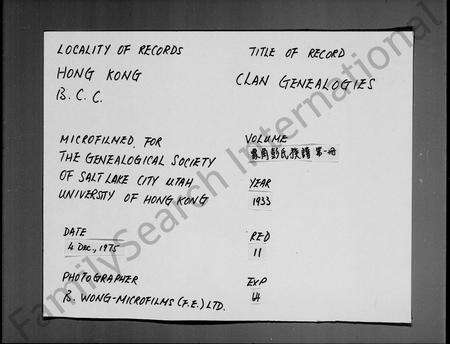 LOCALITY OF RECORDS
HONG KONG
B.C.C.
TITLE OF RECORD
CLAN GENEALOGIES
MICROFILNED FOR
THE GENEALOGICAL SOCIETY
OF SALT LAKE CITY UTAH
UNIVERSTY OF HONG KONG
VOLUME
彭氏族譜 第一册
YEAR
1933
DATE
4 DEC., 1975
RED
11
PHOTOGRAPHER
B. WONG-MICROFILMS (F.E.) LTD.
EXP
FamilySearch International